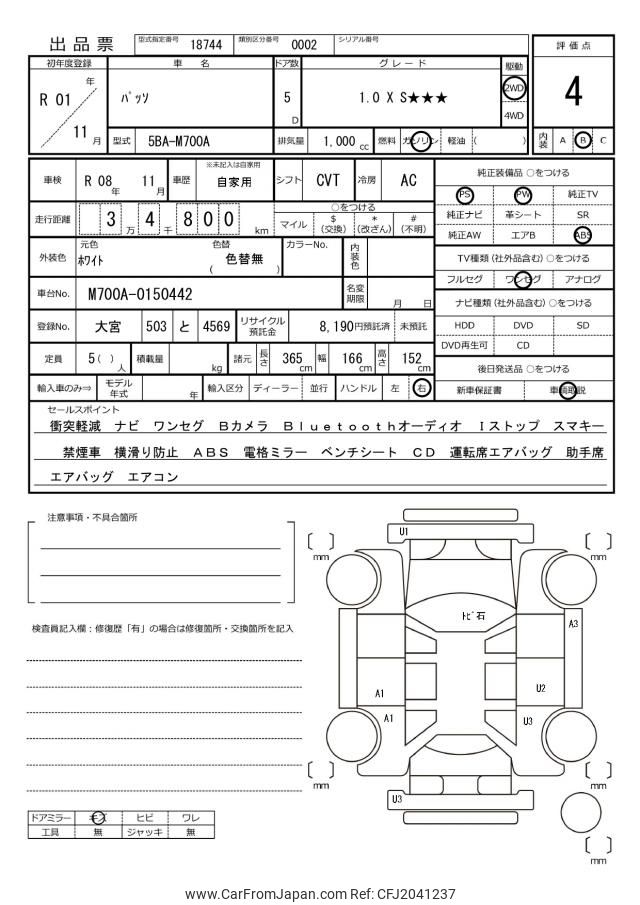 出品票 型式指定番号 18744 類別区分番号 0002 シリアル番号
評価点
4
内装 A B C
初年度登録 車名 ドア数 グレード 駆動
R 01 年 11 月
パッソ
5 D
1.0 X S★★★
2WD
4WD
型式 5BA-M700A 排気量 1,000 cc 燃料 ガソリン 軽油 ( )
車検 R 08 年 11 月 車歴 ※未記入は自家用 自家用 シフト CVT 冷房 AC
走行距離 3 万 4 千 8 0 0 km
○をつける
マイル $ (交換) * (改ざん) # (不明)
外装色 元色 ホワイト 色替 ( 色替無 ) カラーNo. 内装色
車台No. M700A-0150442 名変期限 月 日
登録No. 大宮 503 と 4569 リサイクル預託金 8,190円預託済 未預託
定員 5( ) 人 積載量 kg 諸元 長さ 365 cm 幅 166 cm 高さ 152 cm
輸入車のみ⇒ モデル年式 年 輸入区分 ディーラー 並行 ハンドル 左 右
純正装備品 ○をつける
PS PW 純正TV
純正ナビ 革シート SR
純正AW エアB ABS
TV種類 (社外品含む) ○をつける
フルセグ ワンセグ アナログ
ナビ種類 (社外品含む) ○をつける
HDD DVD SD
DVD再生可 CD
後日発送品 ○をつける
新車保証書 車輌取説
セールスポイント
衝突軽減 ナビ ワンセグ Bカメラ Bluetoothオーディオ Iストップ スマキー
禁煙車 横滑り防止 ABS 電格ミラー ベンチシート CD 運転席エアバッグ 助手席
エアバッグ エアコン
注意事項・不具合箇所
検査員記入欄：修復歴「有」の場合は修復箇所・交換箇所を記入
U1
mm
mm
トビ石
A3
A1
U2
A1
U3
mm
mm
U3
mm
ドアミラー キズ ヒビ ワレ
工具 無 ジャッキ 無
www.CarFromJapan.com Ref: CFJ2041237